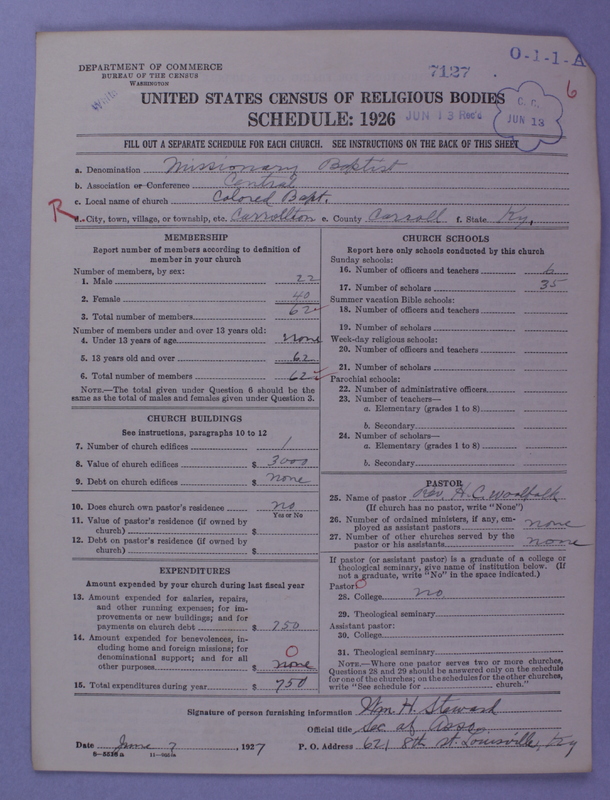 DEPARTMENT OF COMMERCE
BUREAU OF THE CENSUS
WASHINGTON
7127
O-1-1-A
6
UNITED STATES CENSUS OF RELIGIOUS BODIES
SCHEDULE: 1926
JUN 13 Rec'd
JUN 13
FILL OUT A SEPARATE SCHEDULE FOR EACH CHURCH. SEE INSTRUCTIONS ON THE BACK OF THIS SHEET
a. Denomination Missionary Baptist
b. Association or Conference Central
c. Local name of church Colored Bapt.
R
d. City, town, village, or township, etc. Carrollton e. County Carroll f. State Ky.
MEMBERSHIP
Report number of members according to definition of
member in your church
Number of members, by sex:
1. Male 22
2. Female 40
3. Total number of members 62
Number of members under and over 13 years old:
4. Under 13 years of age none
5. 13 years old and over 62
6. Total number of members 62
NOTE.—The total given under Question 6 should be the
same as the total of males and females given under Question 3.
CHURCH BUILDINGS
See instructions, paragraphs 10 to 12
7. Number of church edifices 1
8. Value of church edifices $ 3000
9. Debt on church edifices $ none
10. Does church own pastor's residence no
Yes or No
11. Value of pastor's residence (if owned by
church) $
12. Debt on pastor's residence (if owned by
church) $
EXPENDITURES
Amount expended by your church during last fiscal year
13. Amount expended for salaries, repairs,
and other running expenses; for im-
provements or new buildings; and for
payments on church debt $ 750
14. Amount expended for benevolences, in-
cluding home and foreign missions; for
denominational support; and for all
other purposes $ none
O
15. Total expenditures during year $ 750
CHURCH SCHOOLS
Report here only schools conducted by this church
Sunday schools:
16. Number of officers and teachers 6
17. Number of scholars 35
Summer vacation Bible schools:
18. Number of officers and teachers
19. Number of scholars
Week-day religious schools:
20. Number of officers and teachers
21. Number of scholars
Parochial schools:
22. Number of administrative officers
23. Number of teachers—
a. Elementary (grades 1 to 8)
b. Secondary
24. Number of scholars—
a. Elementary (grades 1 to 8)
b. Secondary
PASTOR
25. Name of pastor Rev. H. C. Woolfolk
(If church has no pastor, write "None")
26. Number of ordained ministers, if any, em-
ployed as assistant pastors none
27. Number of other churches served by the
pastor or his assistants none
If pastor (or assistant pastor) is a graduate of a college or
theological seminary, give name of institution below. (If
not a graduate, write "No" in the space indicated.)
Pastor: O
28. College no
29. Theological seminary
Assistant pastor:
30. College
31. Theological seminary
NOTE.—Where one pastor serves two or more churches,
Questions 28 and 29 should be answered only on the schedule
for one of the churches; on the schedules for the other churches,
write "See schedule for church."
Signature of person furnishing information Wm H. Steward
Official title Sec. of Asso.
Date June 7, 1927 P. O. Address 621 8th St. Louisville, Ky